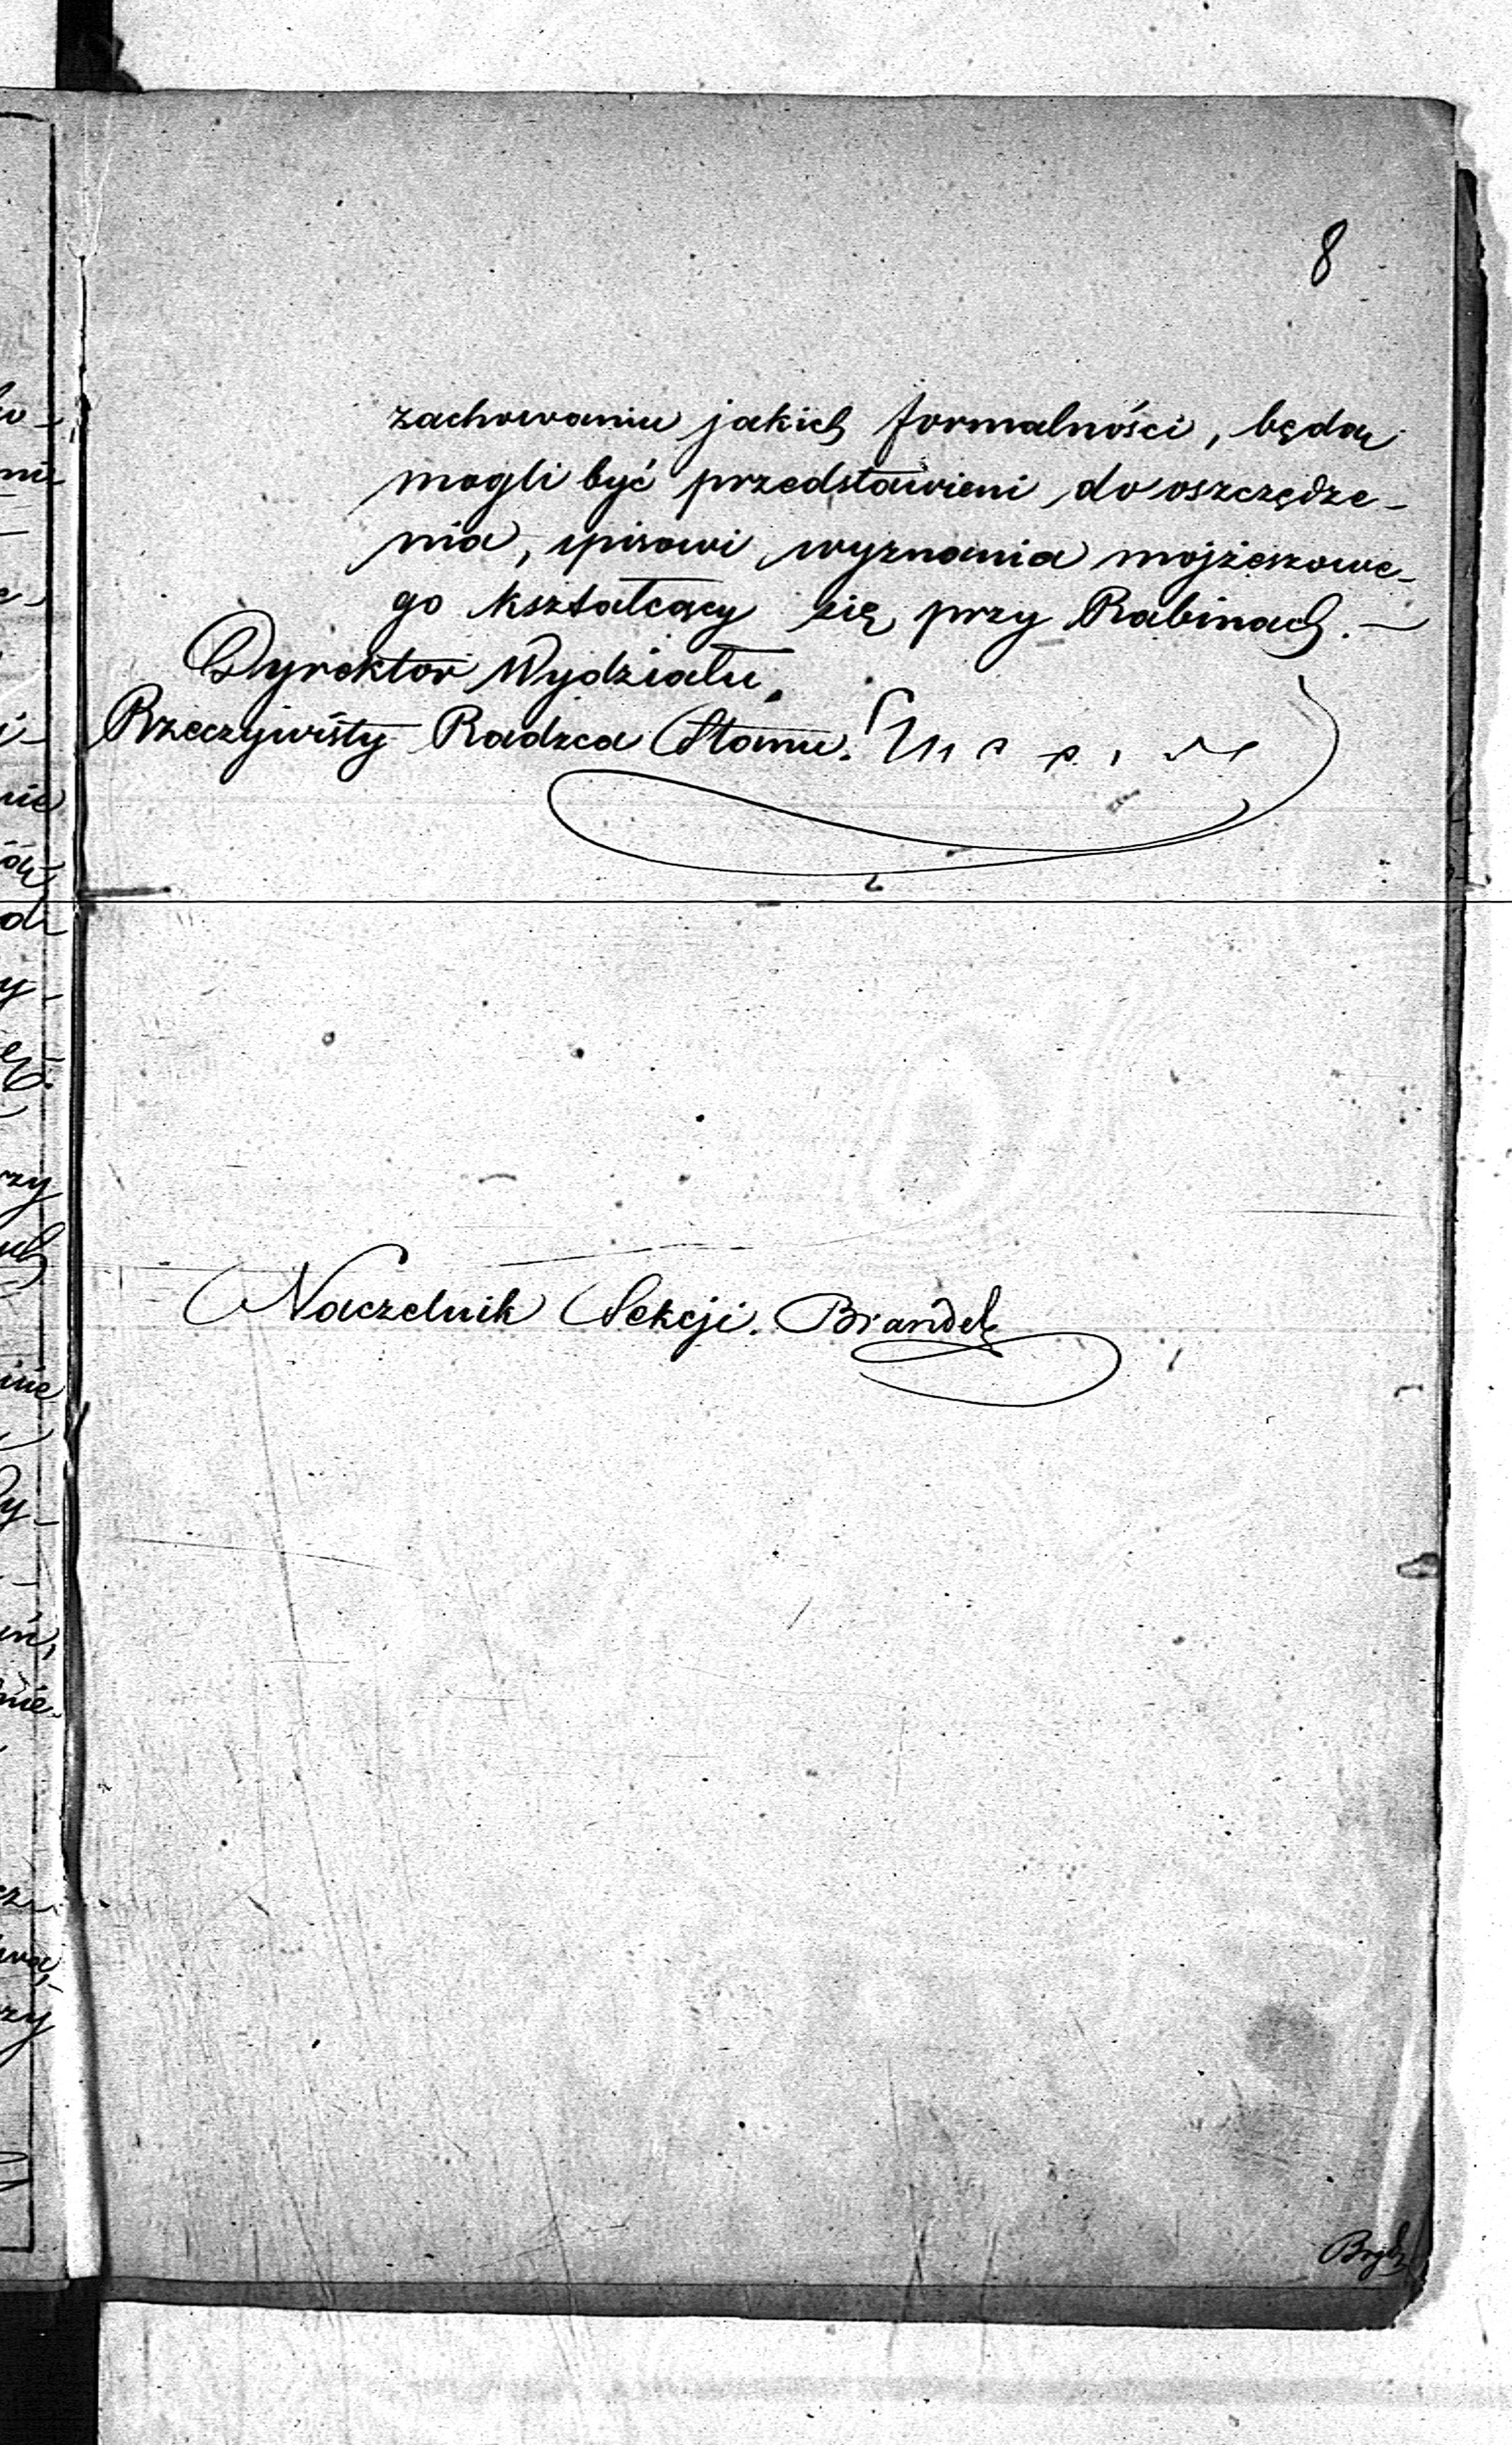 8
zachowaniu jakich formalności, będą
mogli być przedstawieni do oszczędze-
nia, spisowi wyznania mojżeszowe-
go kształcący się przy Rabinach. —
Dyrektor Wydziału,
Rzeczywisty Radzca Stanu.
Naczelnik Sekcji. Brandel